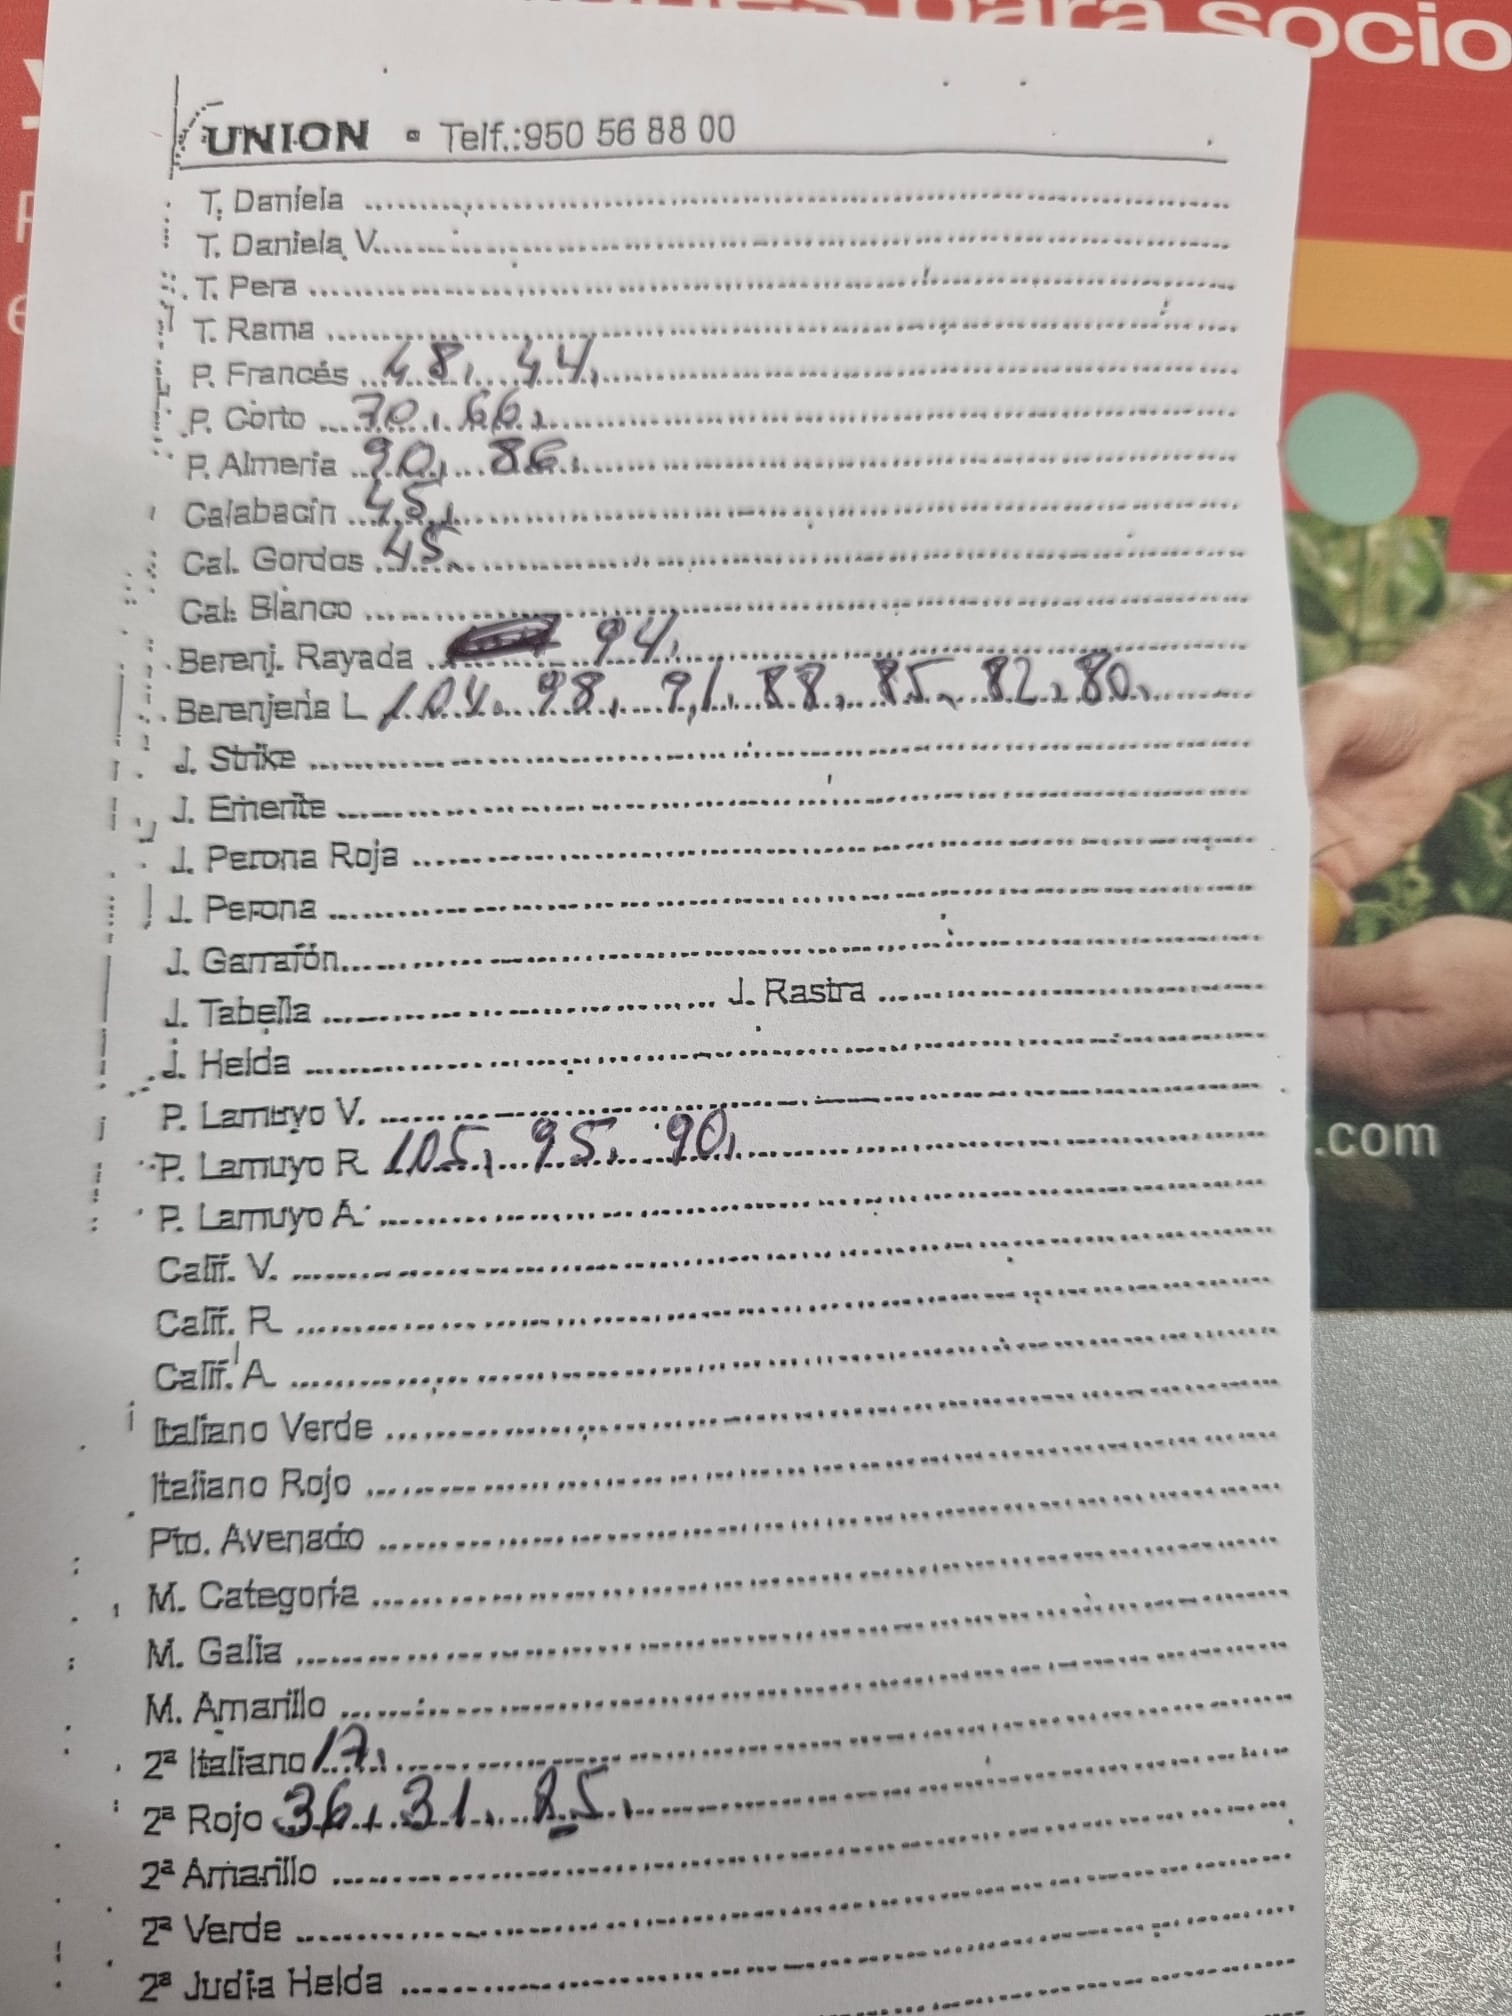 para socio
UNION • Telf.:950 56 88 00
T. Daniela
T. Daniela V.
T. Pera
T. Rama
P. Francés 48, 44,
P. Corto 70, 66,
P. Almeria 90, 86,
Calabacin 45,
Cal. Gordos 45,
Cal. Blanco
Berenj. Rayada 94,
Berenjena L 104, 98, 91, 88, 85, 82, 80,
J. Strike
J. Emerite
J. Perona Roja
J. Perona
J. Garrafón
J. Tabella J. Rastra
J. Helda
P. Lamuyo V.
P. Lamuyo R 105, 95, 90,
P. Lamuyo A.
Calif. V.
Calif. R
Calif. A
Italiano Verde
Italiano Rojo
Pto. Avenado
M. Categoria
M. Galia
M. Amarillo
2ª Italiano 17,
2ª Rojo 36, 31,
2ª Amarillo
2ª Verde
2ª Judia Helda
.com